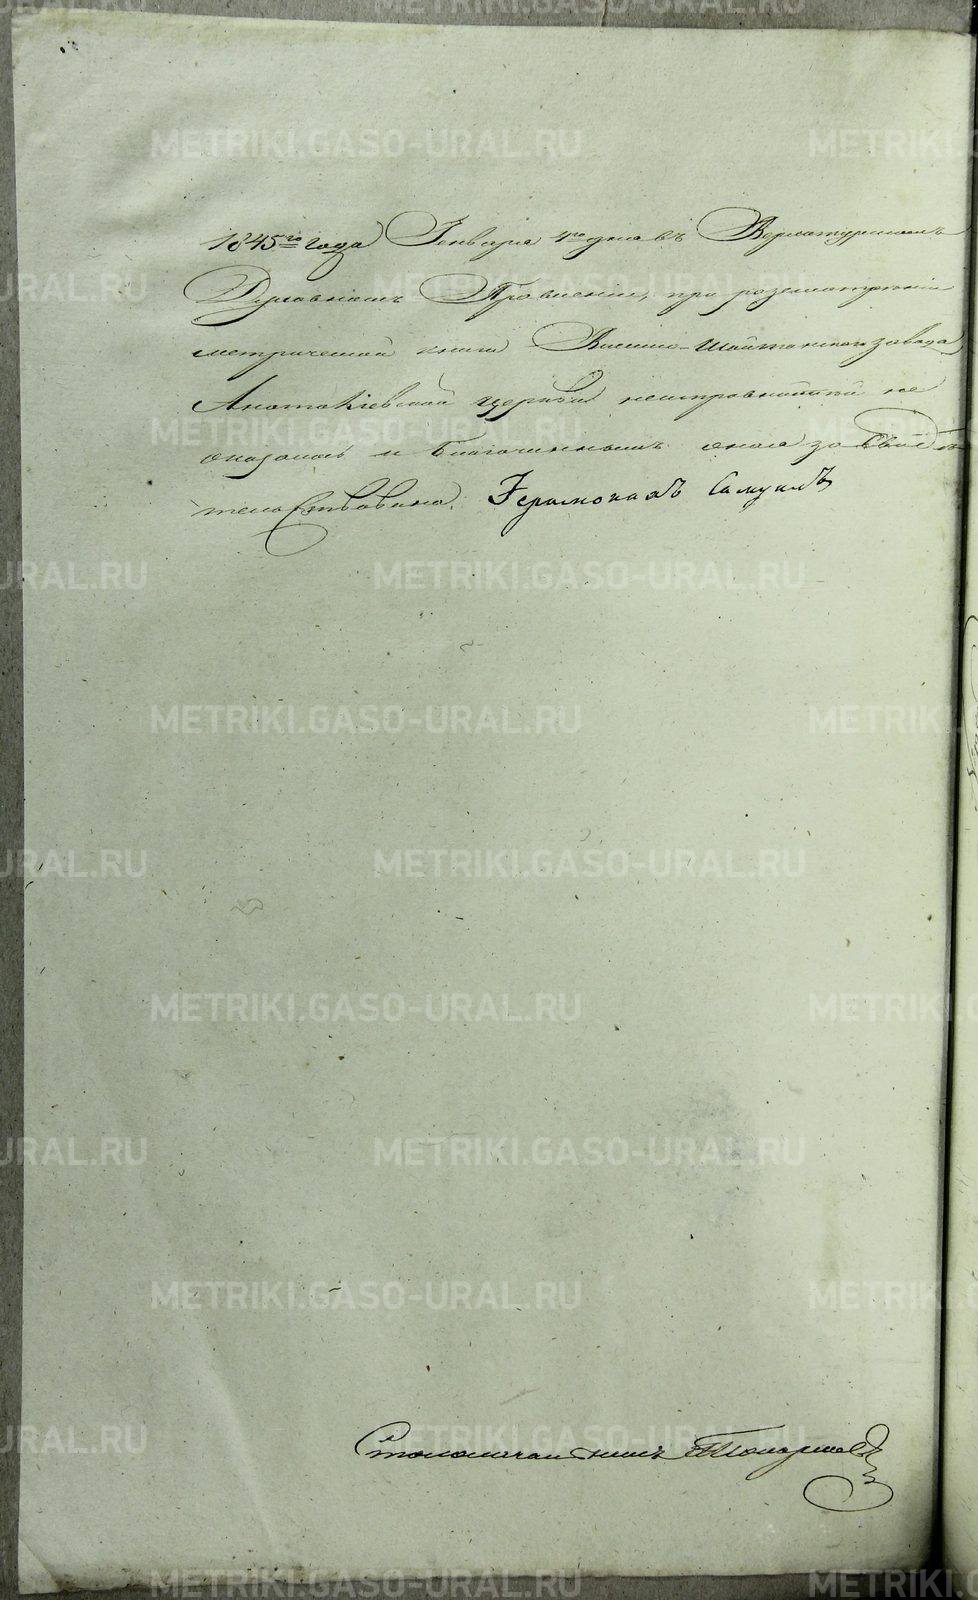 1845го года Генваря 4го дня въ Верхотурскомъ
Духовномъ Правленiи, при розсмотренiи
метрической книги Висимо-Шайтанскаго завода
Анатоліевской церкви неисправностей не
оказалось и Благочиннымъ оная за
Iеромонахъ Самуилъ
Столоначальникъ
METRIKI.GASO-URAL.RU